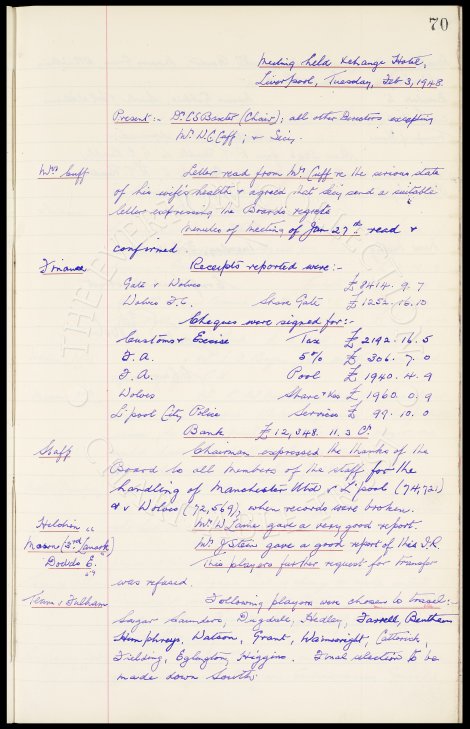 70
Meeting held Xchange Hotel,
Liverpool, Tuesday, Feb 3, 1948.
Present:- Dr C S Baxter (Chair); all other Directors excepting
Mr. W.C. Cuff; & Secy.
Mrs Cuff Letter read from Mr. Cuff re the serious state
of his wife's health & agreed that Secy send a suitable
letter expressing the Boards regrets
Minutes of meeting of Jan 27th read &
confirmed.
Finance Receipts reported were:-
Gate v Wolves £8414. 9. 7
Wolves F.C. Share Gate £1252. 16. 10
Cheques were signed for:-
Customs & Excise Tax £2192. 16. 5
F.A. 5% £306. 7. 0
F.A. Pool £1940. 4. 9
Wolves Share £1960. 0. 9
L'pool City Police Services £99. 10. 0
Bank £12,348. 11. 3 Cr.
Staff Chairman expressed the thanks of the
Board to all members of the staff for the
handling of Manchester Utd v L'pool (74,721)
& v Wolves (72,569), when records were broken.
Mr. W Laine gave a very good report.
Mr. J Stein gave a good report of this I.R.
Dowds E. This players further request for transfer
was refused.
Team v Fulham Following players were chosen to travel:-
Sagar Saunders, Dugdale, Hedley, Farrell, Bentham
Humphreys, Watson, Grant, Wainwright, Catterick,
Fielding, Eglington, Higgins. Final selection to be
made down South.